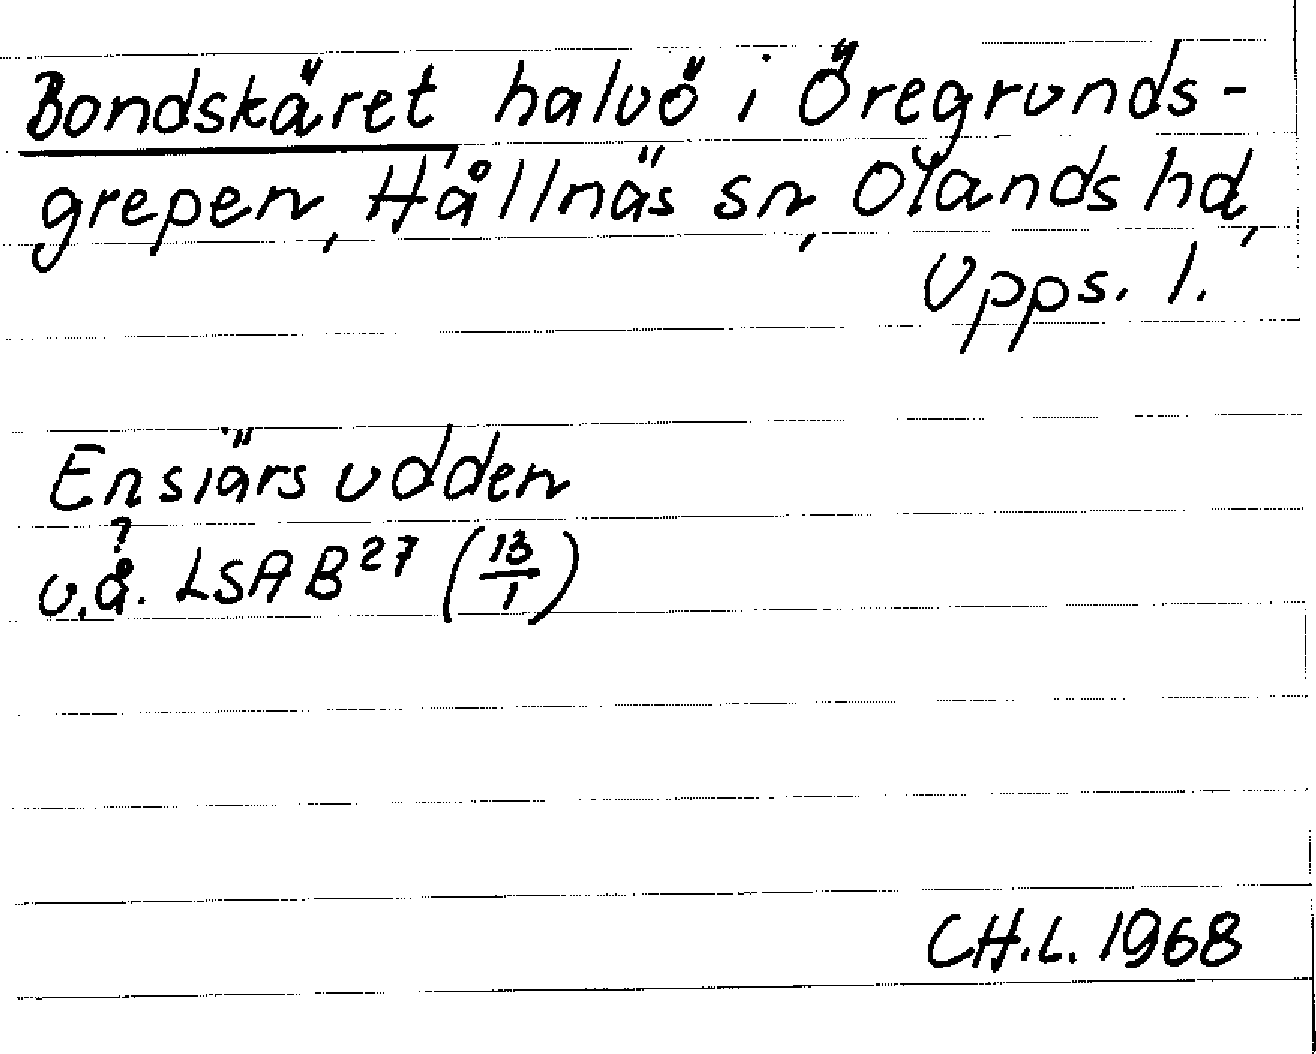 Bondskäret halvö i Öregrunds-
grepen, Hållnäs sn, Olands hd,
Upps. l.
Ensiärs udden
u.å. LSA B²⁷ (13/1)
?
CH.L. 1968